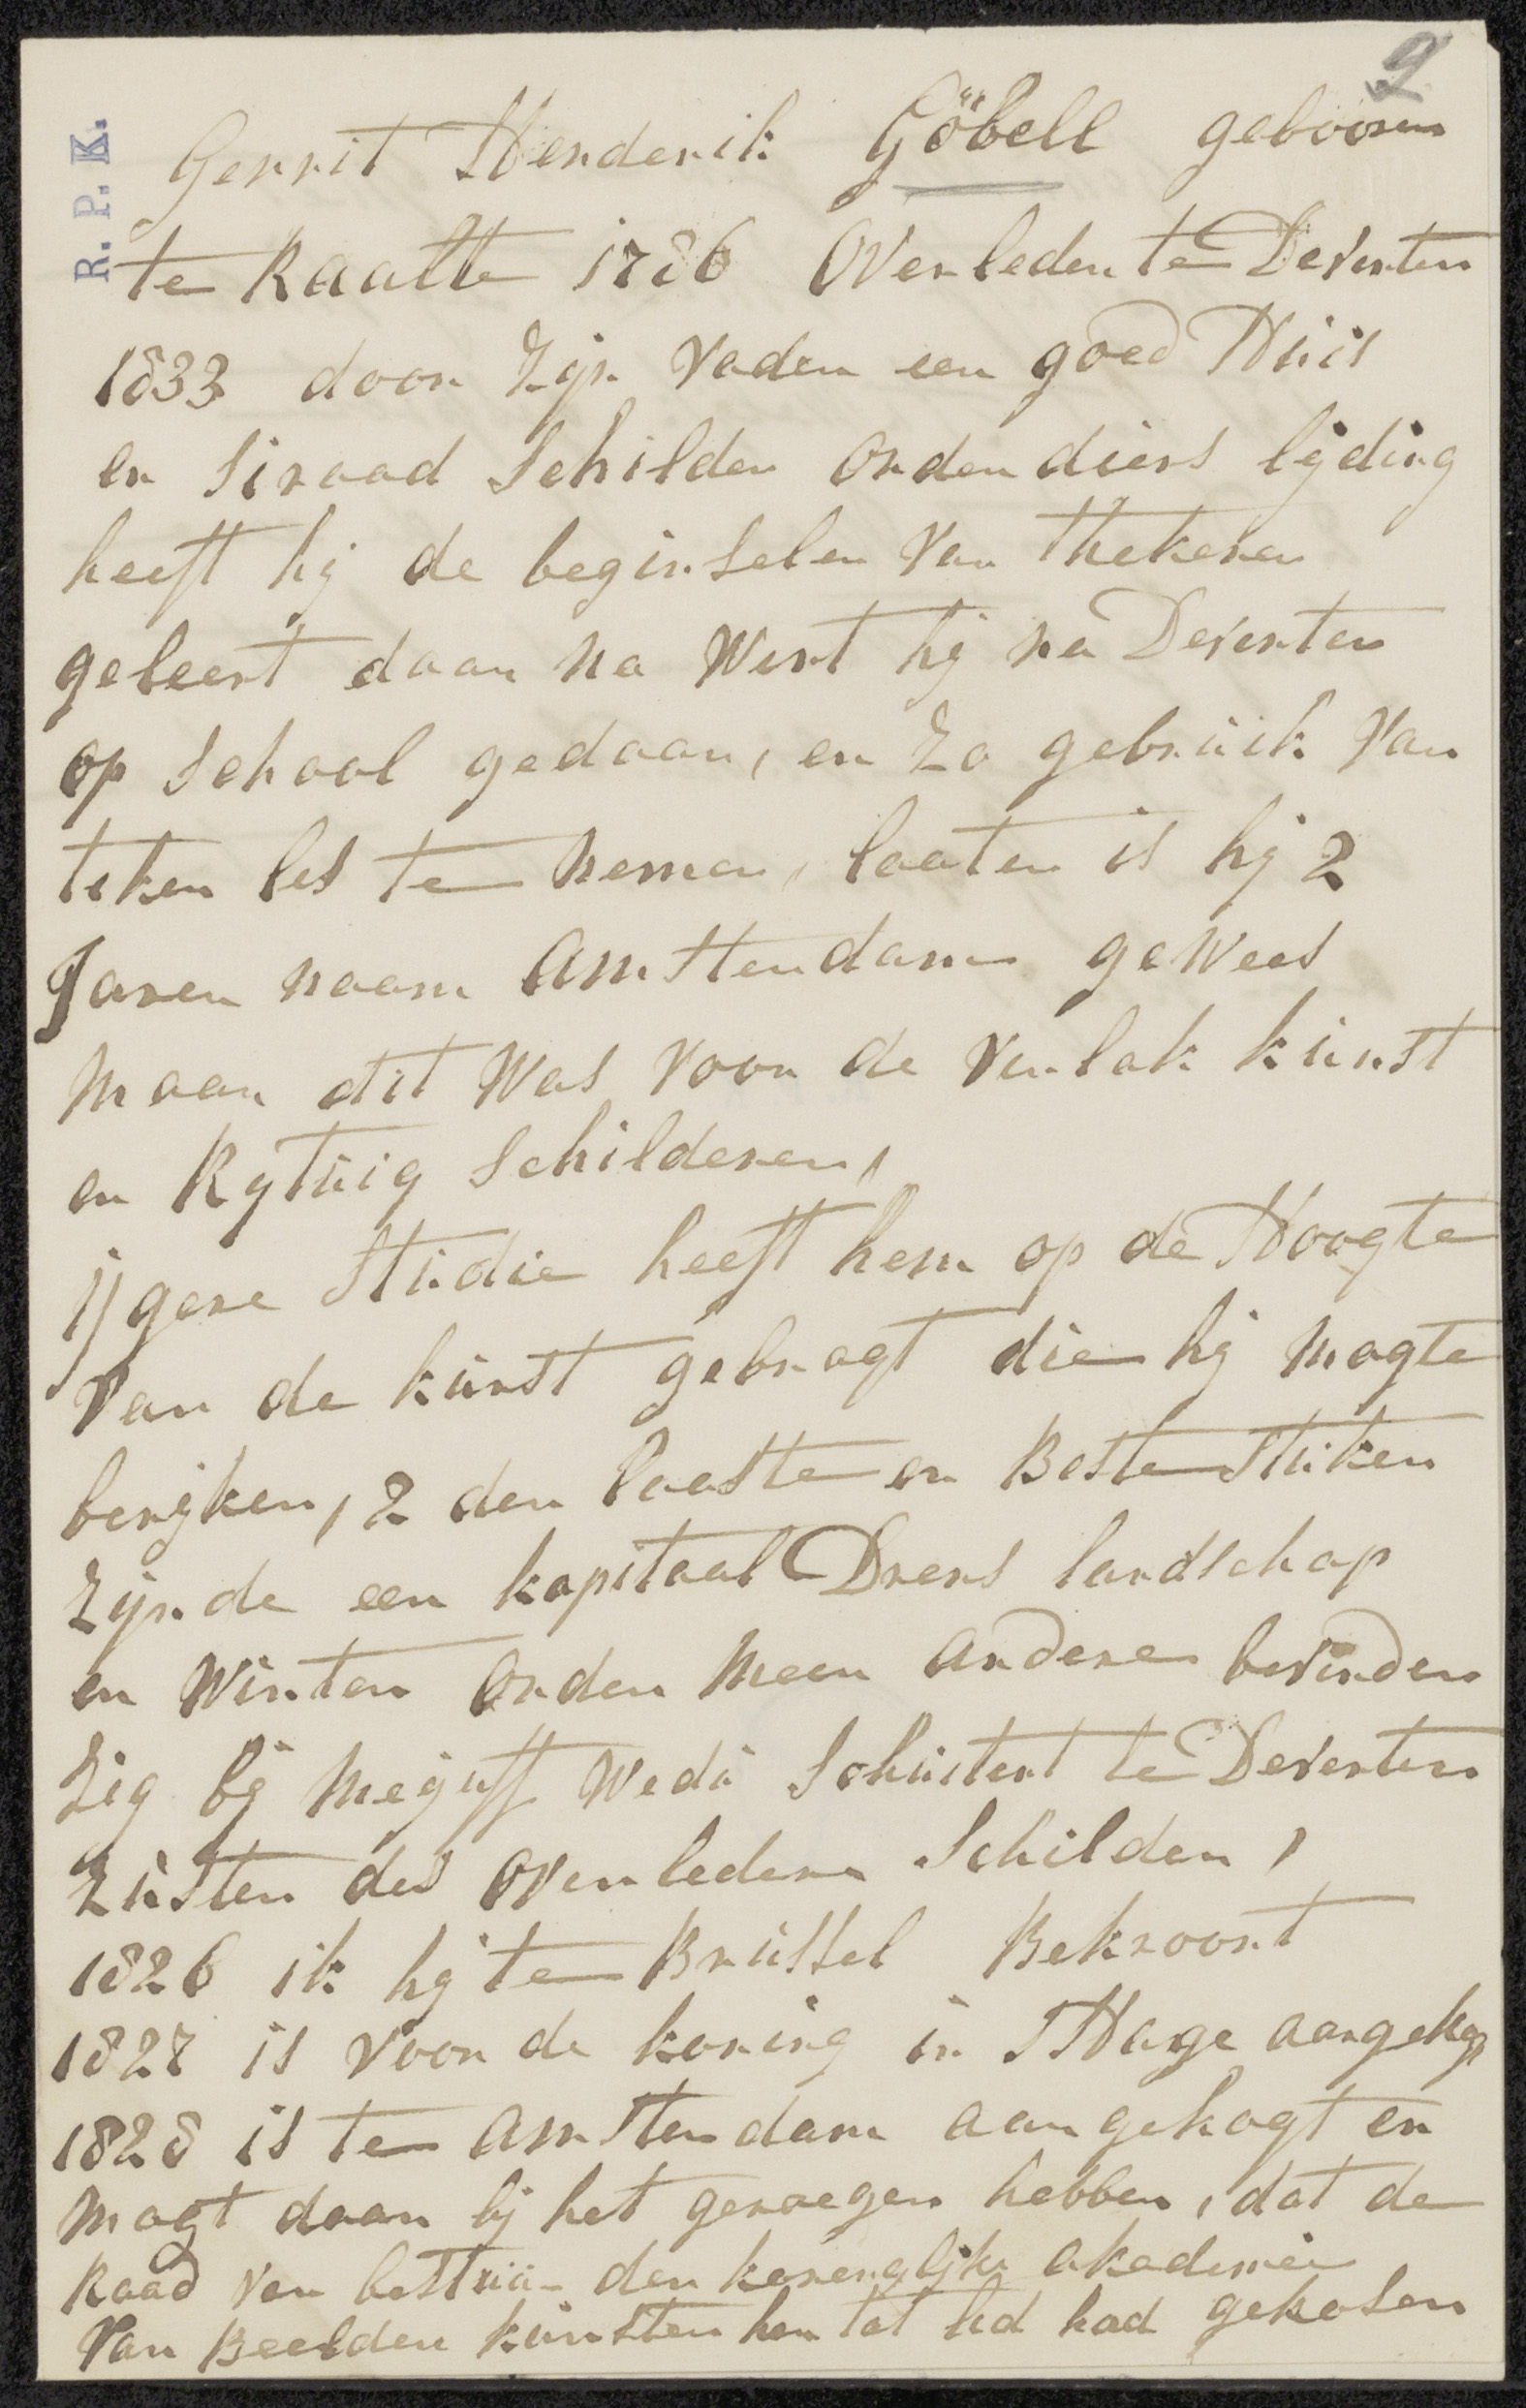 2
R. P. K.
Gerrit Henderik Göbell gebooren
te Raalte 1786 Overleden te Deventer
1833 door Zijn Vader een goed Huis
en Siraad Schilder onder diens lijding
heeft hij de beginselen Van Thekenen
geleert daar na Wert hij na Deventer
op School gedaan, en Zo gebruik Van
teken les te nemen, laater is hij 2
Jaren naar Amsterdam geWees
maar dit Was Voor de Verlak kunst
en Rytuig Schilderen,
ijgene Studie heeft hem op de Hoogte
Van de kunst gebragt die hij Mogte
berijken, 2 der laaste en Beste Stuken
Zijnde een kapitaal Drens landschap
en Winter onder meer andere bevinden
Zig bij Mejuff Wedu Schuitert te Deventer
Zuster des overledene Schilder,
1826 ik hij te Brussel Bekroont
1827 is Voor de koning in SHage aangekog
1828 is te Amsterdam aangekogt en
Mogt daar bij het genoegen hebben, dat de
Raad Van bestuu- der konenglijke akademie
Van Beelden kunsten hem tot lid had gekosen